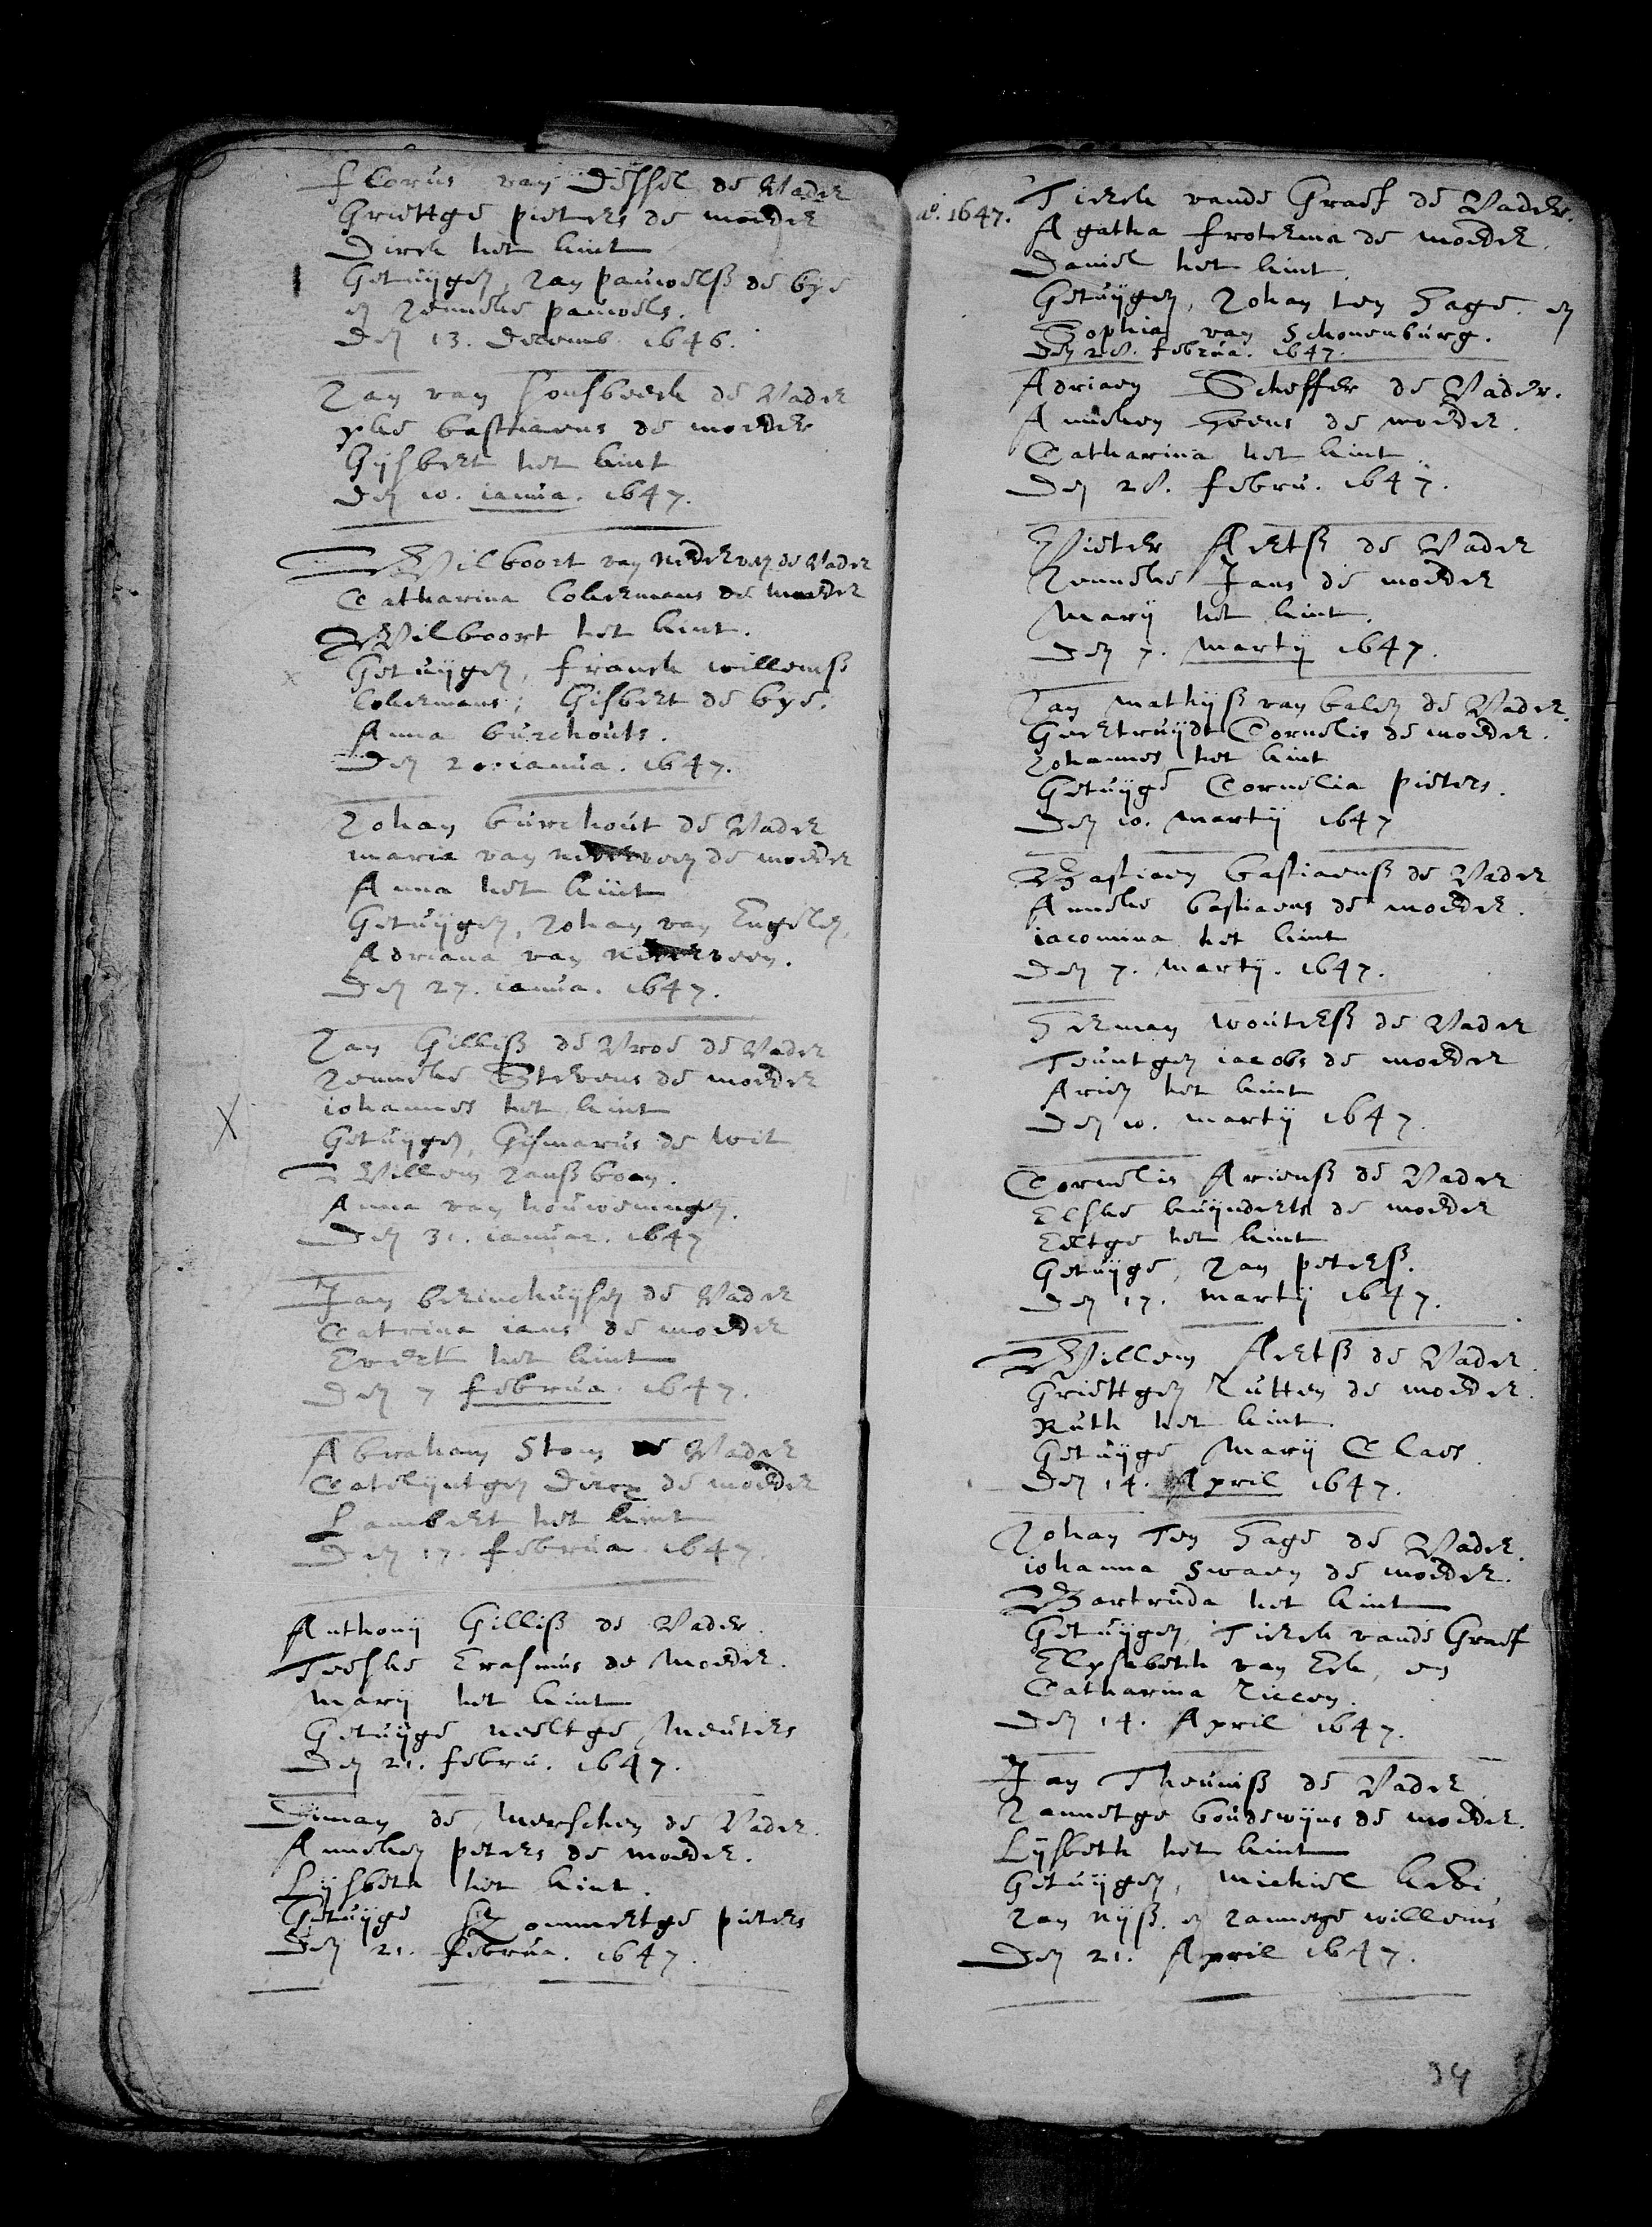 florus van Dessel de Vader
Griettge pieters de moeder
Dirck het kint
Getuÿgen, Jan pauwelsz de bÿe
en Jenneke pauwels.
Den 13. Decemb. 1646.
Jan van Honsbeeck de Vader
ÿke bastiaens de moeder
Gÿsbert het kint
Den 10. ianua. 1647.
Wilboort van nederven de Vader
Catharina Cokermans de moeder
Wilboort het kint.
Getuÿgen, franck willemsz
Cokermans; Gisbert de bÿe.
Anna burchouts.
Den ianua. 1647.
Johan burchout de Vader
maria van de moeder
Anna het kint
Getuÿgen, Johan van Engelen,
Adriana van
Den 27. ianua. 1647.
Jan Gillisz de Vroe de Vader
Jenneke Stevens de moeder
iohannes het kint
Getuÿgen, Gismarus de wit
Willem Jansz boon.
Anna van houweningen.
Den 31. ianuar. 1647
Jan berinchuÿsen de Vader
Catrina ians de moeder
Evert het kint
Den 7 februa. 1647.
Abraham Stom de Vader
Catelÿntgen dircx de moeder
Lambert het kint
Den 17. februa. 1647.
Anthonÿ Gillisz de Vader.
Teeske Erasmus de moeder.
marÿ het kint
Getuÿge neeltge Meuters
Den 21. febru. 1647.
Timan de Merschen de Vader.
Anneken peters de moeder.
Lÿsbeth het kint.
Getuÿge Hommertge pieters
Den 21. februa. 1647.
a°. 1647.
Tierck vande Graef de Vader.
Agatha froterma de moeder.
Daniel het kint.
Getuÿgen, Johan ten Hage. en
Sophia van Schonenburg.
Den 28. februa. 1647.
Adriaen Scheffer de Vader.
Anneken Heens de moeder.
Catharina het kint.
Den 28. febru. 1647.
Pieter Aertsz de Vader
Jenneke Jans de moeder
Marÿ het kint.
Den 7. martÿ 1647.
Jan mathÿsz van balen de Vader.
Geertruÿdt Cornelis de moeder.
Johannes het kint
Getuÿge Cornelia pieters.
Den 10. martÿ 1647
Bastiaen bastiaensz de Vader
Anneke bastiaens de moeder.
iacomina het kint
Den 7. martÿ. 1647.
Herman woutersz de Vader
Teuntgen iacobs de moeder
Arien het kint
Den 10. martÿ 1647.
Cornelis Ariensz de Vader
Elske kuÿnderts de moeder
Eeltge het kint
Getuÿge, Jan petersz.
Den 17. martÿ 1647.
Willem Aertsz de Vader.
Griettgen Rutten de moeder.
Ruth het kint.
Getuÿge Marÿ Claes.
Den 14. April 1647.
Johan Ten Hage de Vader.
iohanna Swaen de moeder.
Bartruda het kint
Getuÿgen, Tierck vande Graef
Elÿsabeth van Eck, en
Catharina Ticcen.
Den 14. April 1647.
Jan Theunisz de Vader
Jannetge boudewÿns de moeder.
Lÿsbeth het kint
Getuÿgen, Michiel
Jan nÿsz. en Jannetge willems
Den 21. April 1647.
34